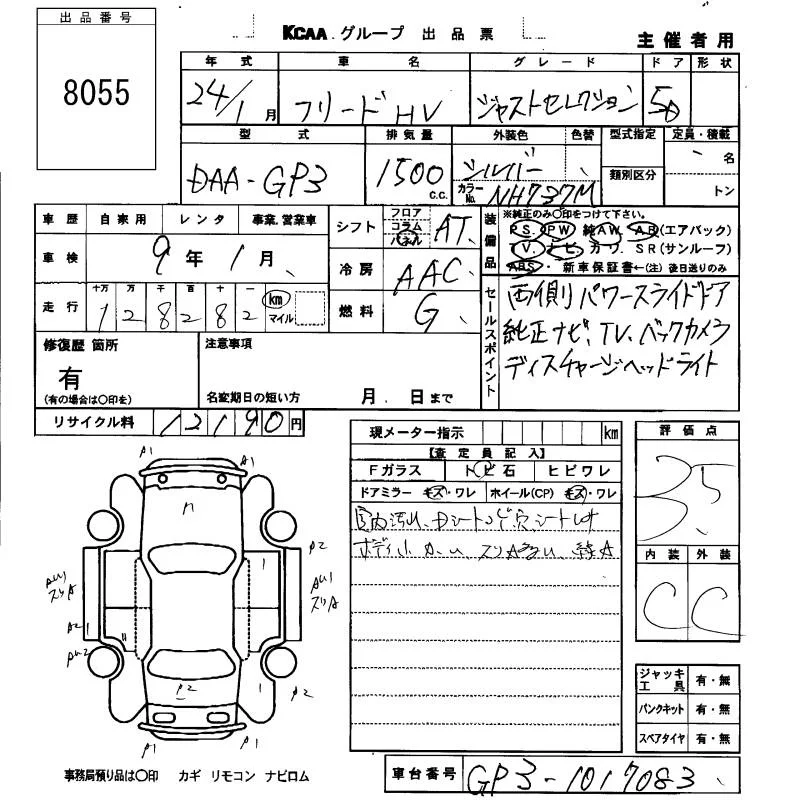 出品番号
8055
KCAA グループ 出品票
主催者用
年式 車名 グレード ドア 形状
24/1月 フリード HV ジャストセレクション 5D
型式 排気量 外装色 色替 型式指定 定員・積載
DAA-GP3 1500 c.c. シルバー 名
カラーNo. NH737M 類別区分 トン
車歴 自家用 レンタ 事業.営業車
車検 9年1月
走行 十万 万 千 百 十 一 km マイル
128282
シフト フロア コラム パネル AT
冷房 AAC
燃料 G
装備品 ※純正のみ○印をつけて下さい。
PS. PW 純AW. AB(エアバック)
TV. ナビ. カワ. SR(サンルーフ)
ABS・新車保証書←(注) 後日送りのみ
セールスポイント 両側パワースライドドア
純正ナビ、TV、バックカメラ
ディスチャージヘッドライト
修復歴 箇所
有
(有の場合は○印を)
注意事項
名変期日の短い方 月 日まで
リサイクル料 12190円
現メーター指示 km
【査定員記入】
Fガラス トビ石 ヒビワレ
ドアミラー キズ・ワレ ホイール(CP) キズ・ワレ
室内汚れ、
ボディ小
評価点
3.5
内装 外装
C C
A1 A1
P2
AU1 スリA
AU1 スリA
A2
P2 P2
A1 A1
ジャッキ工具 有・無
パンクキット 有・無
スペアタイヤ 有・無
事務局預り品は○印 カギ リモコン ナビロム
車台番号 GP3-1017083